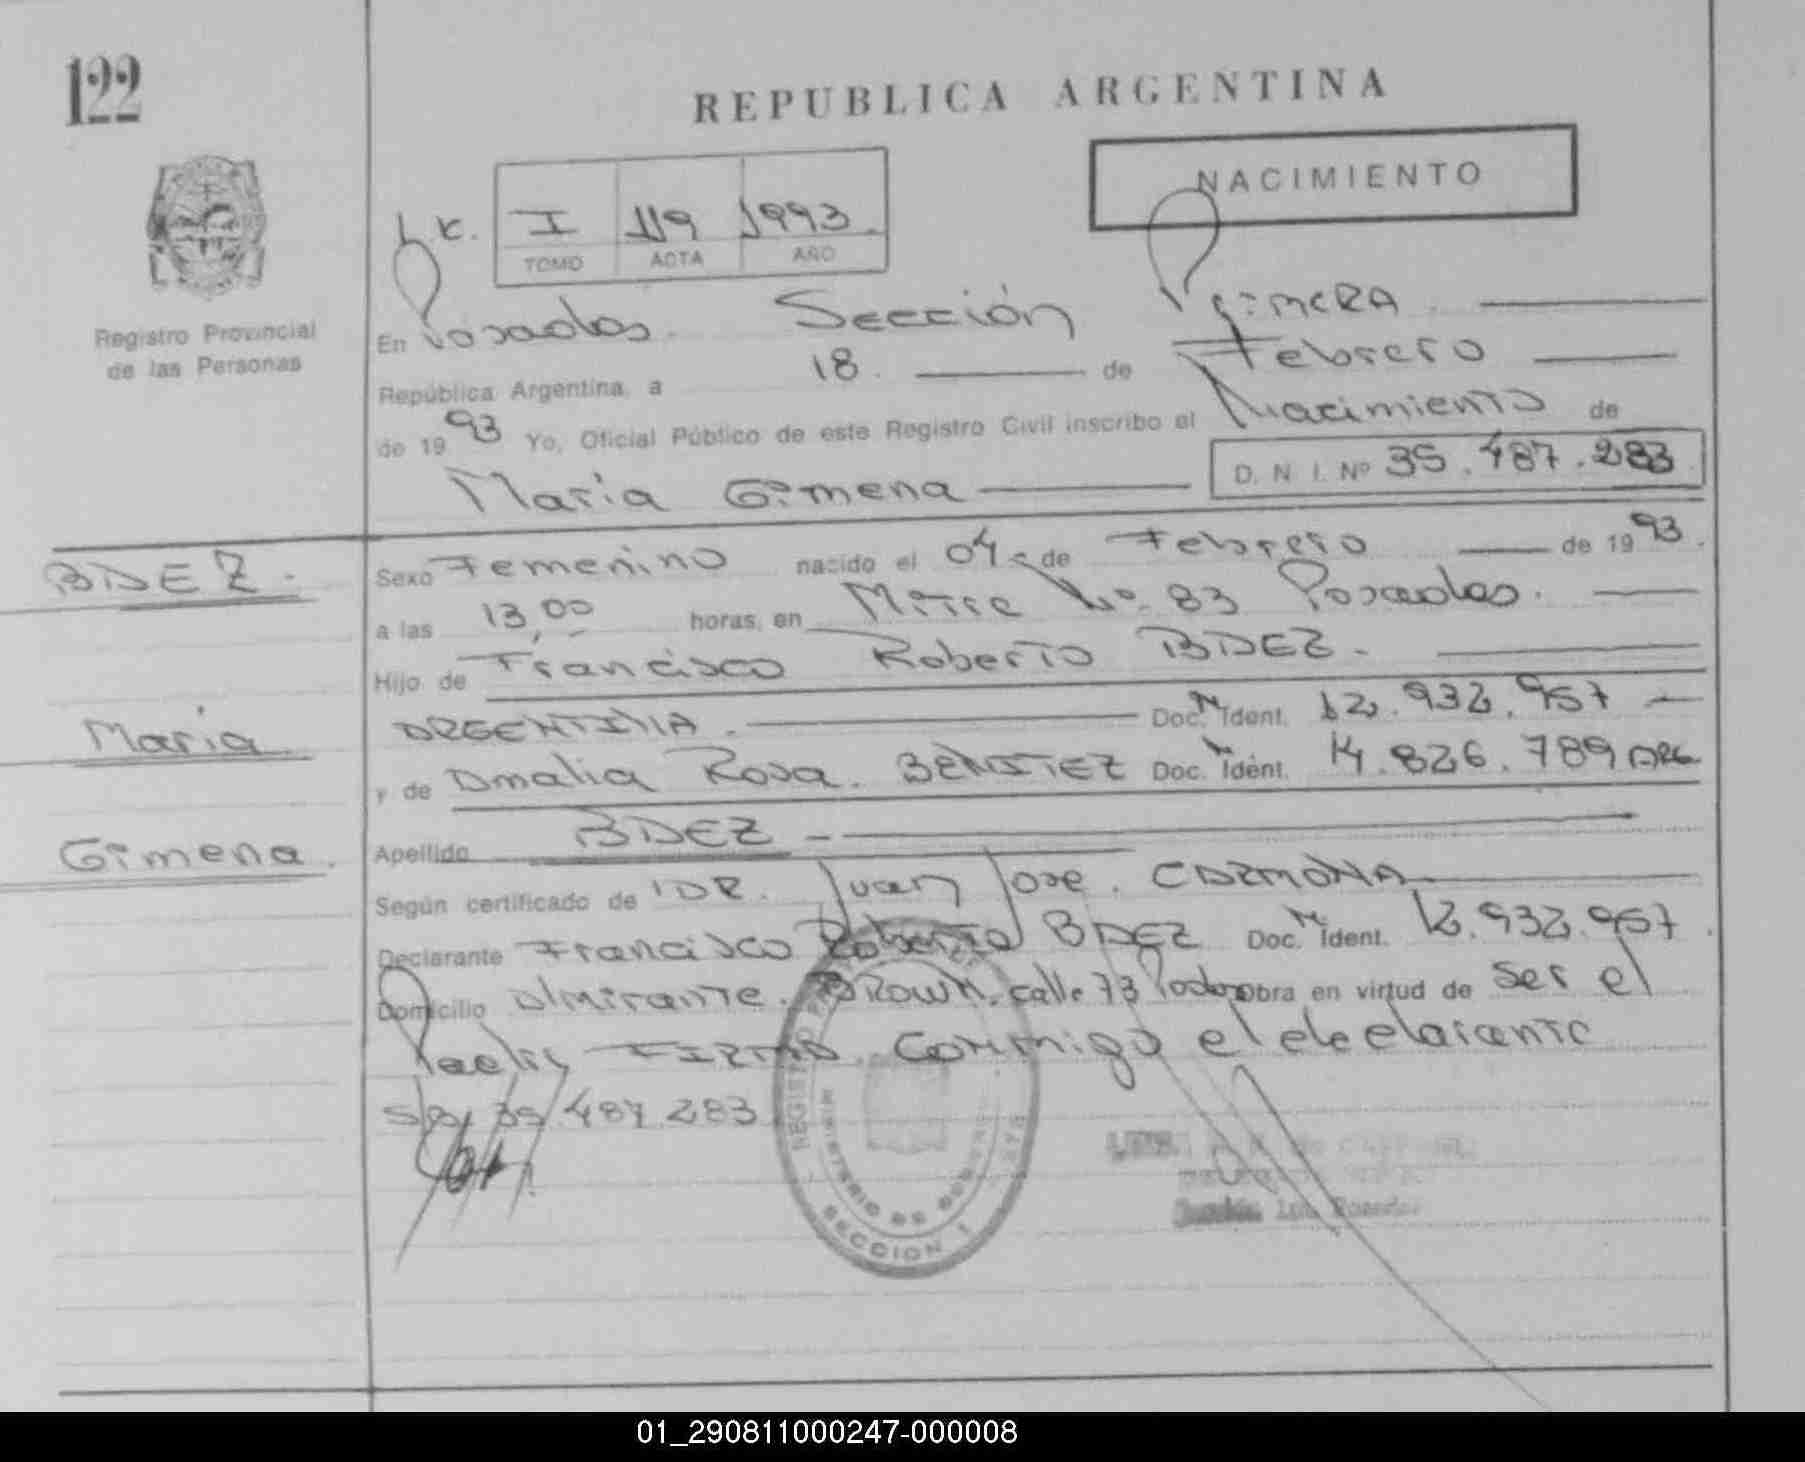 122
REPUBLICA ARGENTINA
NACIMIENTO
I 119 1993
TOMO ACTA AÑO
Registro Provincial
de las Personas
En Posadas. Sección Primera
República Argentina, a 18. de Febrero
de 1993 Yo, Oficial Público de este Registro Civil inscribo el Nacimiento de
Maria Gimena D. N. I. Nº 35.487.283
BAEZ.
Sexo Femenino nacido el 04 de Febrero de 1993.
a las 13,00 horas, en Mitre Nº 83 Posadas.
Hijo de Francisco Roberto BAEZ.
Maria
ARGENTINA. Doc. M Ident. 12.932.957
y de Amalia Rosa. BENITEZ Doc. Ident. 14.826.789 ARG
Gimena.
Apellido BAEZ
Según certificado de DR. Juan Jose. CARMONA
Declarante Francisco Roberto BAEZ Doc. M Ident. 12.932.957.
Domicilio Almirante. BROWN. calle 73 obra en virtud de ser el
Padre FIRMA Conmigo el declarante
35.487.283
REGISTRO
MINISTERIO DE
SECCION 1
01_290811000247-000008